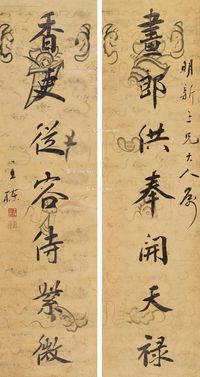 明新三兄大人属
畫郎供奉開天祿
香吏從容侍紫微